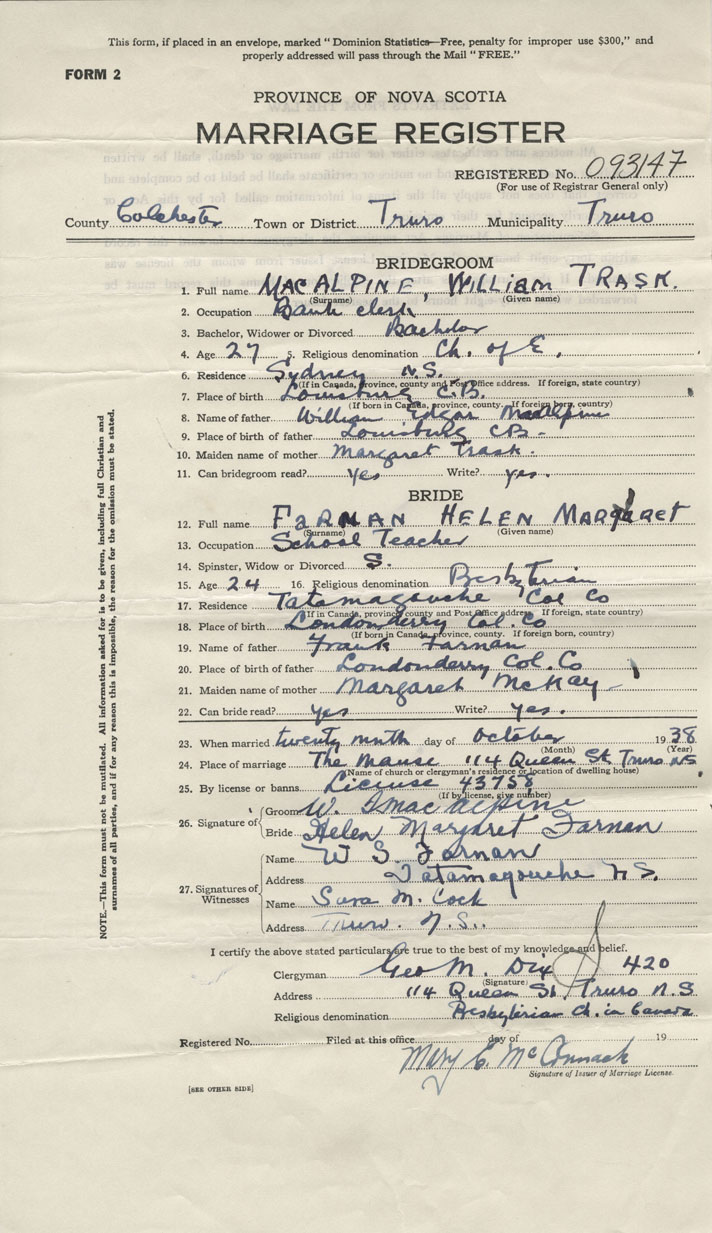 This form, if placed in an envelope, marked “ Dominion Statistics—Free, penalty for improper use $300,” and
properly addressed will pass through the Mail “ FREE.”
FORM 2
PROVINCE OF NOVA SCOTIA
MARRIAGE REGISTER
REGISTERED No. 093147
(For use of Registrar General only)
County Colchester Town or District Truro Municipality Truro
BRIDEGROOM
1. Full name MACALPINE, WILLIAM TRASK.
(Surname) (Given name)
2. Occupation Bank clerk
3. Bachelor, Widower or Divorced Bachelor
4. Age 27 5. Religious denomination Ch. of E.
6. Residence Sydney N.S.
(If in Canada, province, county and Post Office address. If foreign, state country)
7. Place of birth Louisburg C.B.
(If born in Canada, province, county. If foreign born, country)
8. Name of father William Edgar MacAlpine
9. Place of birth of father Louisburg CB.
10. Maiden name of mother Margaret Trask.
11. Can bridegroom read? Yes Write? yes.
BRIDE
12. Full name FARNAN HELEN MARGARET
(Surname) (Given name)
13. Occupation School Teacher
14. Spinster, Widow or Divorced S.
15. Age 24 16. Religious denomination Presbyterian
17. Residence Tatamagouche Col Co
(If in Canada, province, county and Post Office address. If foreign, state country)
18. Place of birth Londonderry Col. Co
(If born in Canada, province, county. If foreign born, country)
19. Name of father Frank Farnan
20. Place of birth of father Londonderry Col. Co
21. Maiden name of mother Margaret McKay
22. Can bride read? yes Write? yes.
23. When married twenty ninth day of October 1938
(Month) (Year)
24. Place of marriage The Manse 114 Queen St Truro NS
(Name of church or clergyman's residence or location of dwelling house)
25. By license or banns License 43758
(If by license, give number)
26. Signature of
Groom W. T. MacAlpine
Bride Helen Margaret Farnan
27. Signatures of Witnesses
Name W S. Farnan
Address Tatamagouche N.S.
Name Sara M. Cock
Address Truro. N.S.
I certify the above stated particulars are true to the best of my knowledge and belief.
Clergyman Geo M. Dix 420
(Signature)
Address 114 Queen St. Truro N.S
Religious denomination Presbyterian Ch. in Canada
Registered No. Filed at this office day of 19
Mary C. McCormack
Signature of Issuer of Marriage License.
[SEE OTHER SIDE]
NOTE.—This form must not be mutilated. All information asked for is to be given, including full Christian and
surnames of all parties, and if for any reason this is impossible, the reason for the omission must be stated.